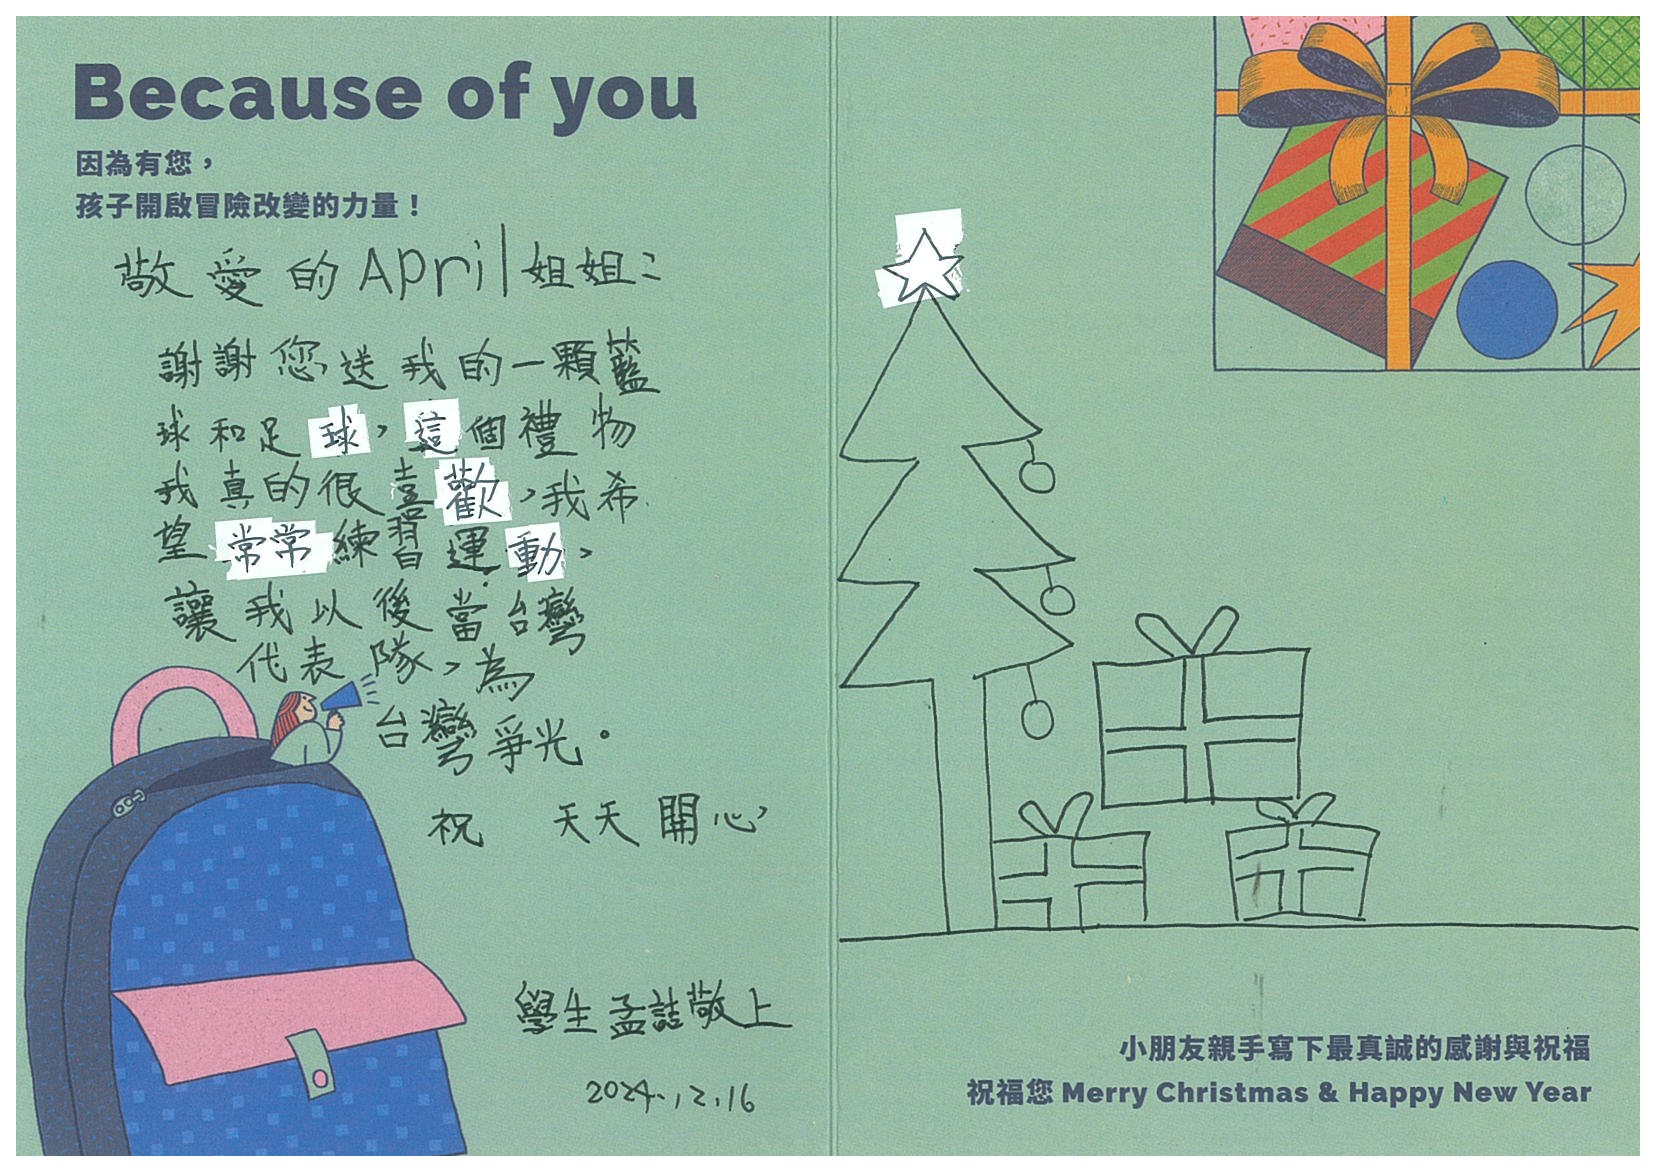 Because of you
因為有您，
孩子開啟冒險改變的力量！
敬愛的April姐姐：
謝謝您送我的一顆籃
球和足球，這個禮物
我真的很喜歡，我希
望常常練習運動，
讓我以後當台灣
代表隊，為
台灣爭光。
祝 天天開心
學生孟喆敬上
2024.12.16
小朋友親手寫下最真誠的感謝與祝福
祝福您 Merry Christmas & Happy New Year